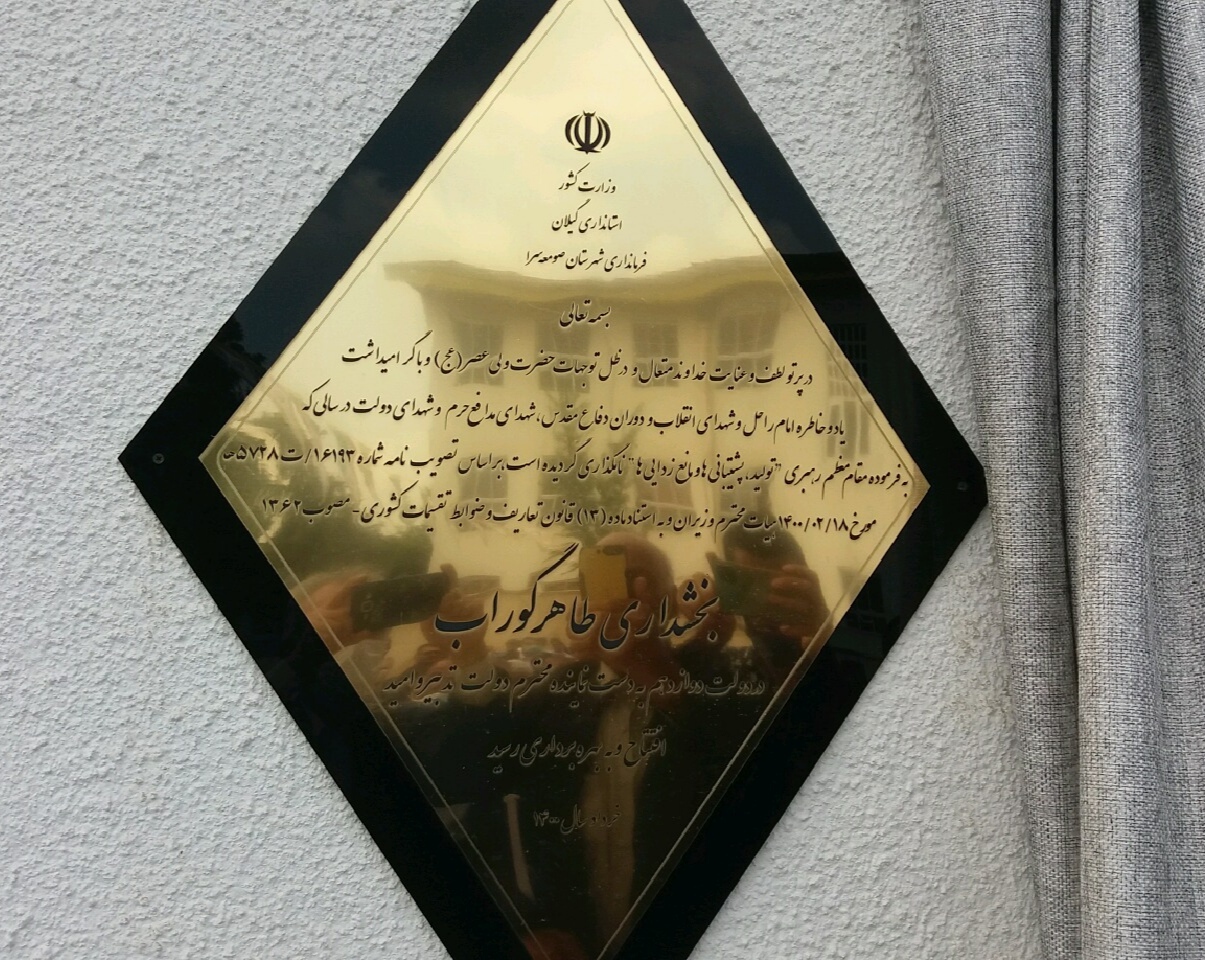 وزارت کشور
استانداری گیلان
فرمانداری شهرستان صومعه سرا
بسمه تعالی
در پرتو لطف و عنایت خداوند متعال و در ظل توجهات حضرت ولی عصر (عج) و با گرامیداشت
یاد و خاطره امام راحل و شهدای انقلاب و دوران دفاع مقدس، شهدای مدافع حرم و شهدای دولت در سالی که
به فرموده مقام معظم رهبری "تولید، پشتیبانی ها و مانع زدایی ها" نامگذاری گردیده است، بر اساس تصویب نامه شماره ۱۶۱۹۳/ت۵۷۲۸
مورخ ۱۴۰۰/۰۲/۱۸ هیات محترم وزیران و به استناد ماده (۱۳) قانون تعاریف و ضوابط تقسیمات کشوری - مصوب ۱۳۶۲
بخشداری طاهرگوراب
در دولت دوازدهم به دست نماینده محترم دولت تدبیر و امید
افتتاح و به بهره برداری رسید
خرداد سال ۱۴۰۰